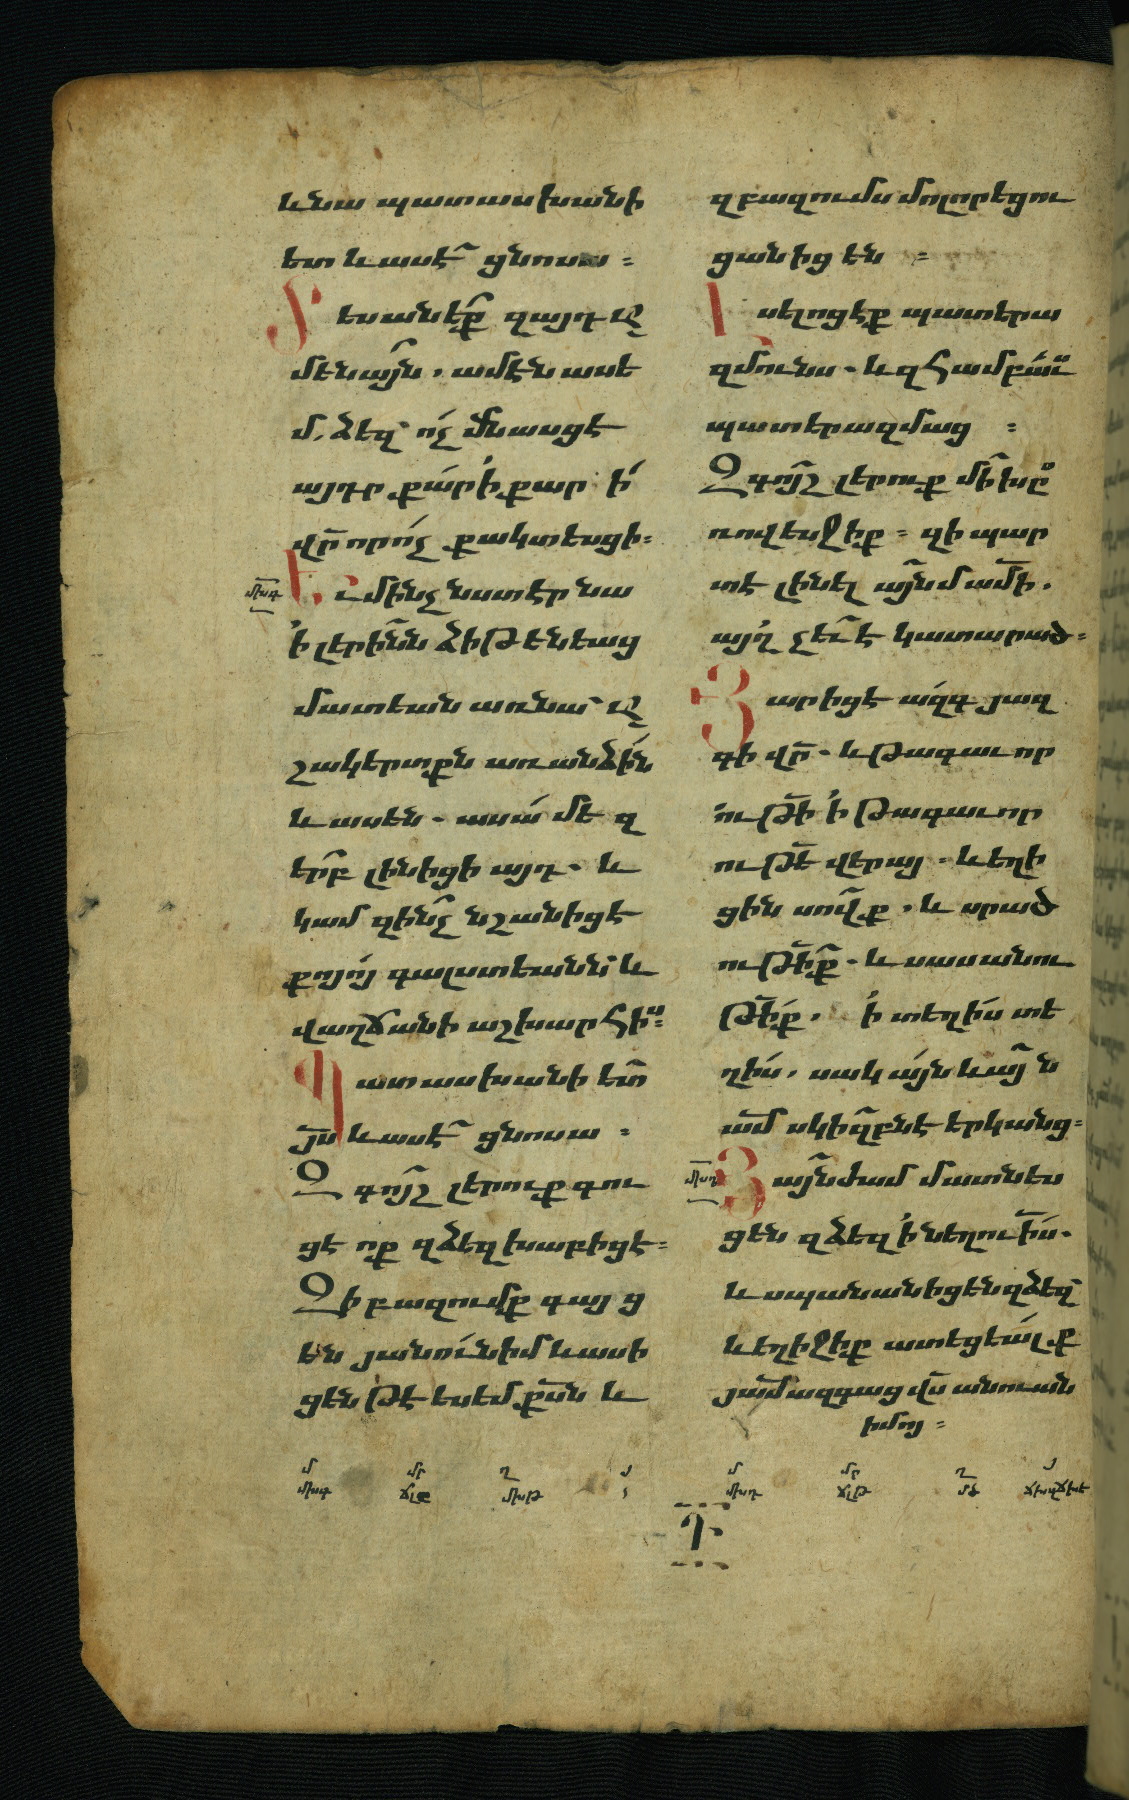 և նա պատասխանի
ետ և ասէ ցնոսա ։
Տեսանէք զայդ ը
մենայն . ամէն ասե
մ, ձեզ՝ ոչ մնասցէ
այդր քար ի քար ի
վր որ ոչ քակտեսցի ։
մխգ
Եւ մինչ նստէր նա
ի լերինն ձիթենեաց
մատեան առ նա՝ ը
շակերտքն առանձին
և ասեն . ասա մեզ
երբ լինիցի այդ . և
կամ զինչ նշանիցէ
քոյոյ գալստեանն՝ և
վաղճանի աշխարհիս ։
Պատասխանի ետ
յս և ասէ ցնոսա ։
Զգոյշ լերուք գու
ցէ ոք զձեզ խաբիցէ ։
Զի բազումք գայց
են յանուն իմ և ասի
ցեն թէ ես եմ քսն և
զբազումս մոլորեցու
ցանիցեն ։
Լսելոց էք պատերա
զմունս . և զհամբաւս
պատերազմաց ։
Զգոյշ լերուք մի խը
ռովեսջիք ։ զի պար
տէ լինել այնմ ամի .
այղ չեւ է կատարած ։
Յարիցէ ազգ յազ
գի վր . և թագաւոր
ութի ի թագաւոր
ութե վերայ . և եղի
ցին սովք . և սրած
ութիք . և սասանու
թիք . ի տեղիս տե
ղիս . սակայն և այն
ամ սկիզբն է երկանց ։
մխդ
Յայնժամ մատնես
ցեն զձեզ ի նեղութիս .
և սպանանիցեն զձեզ՝
և եղիջիք ատեցեալք
յամ ազգաց վս անուան
իմոյ ։
մ մր ղ յ
մխգ ճլը մխթ
մ մր ղ յ
մխդ ճլթ մձ